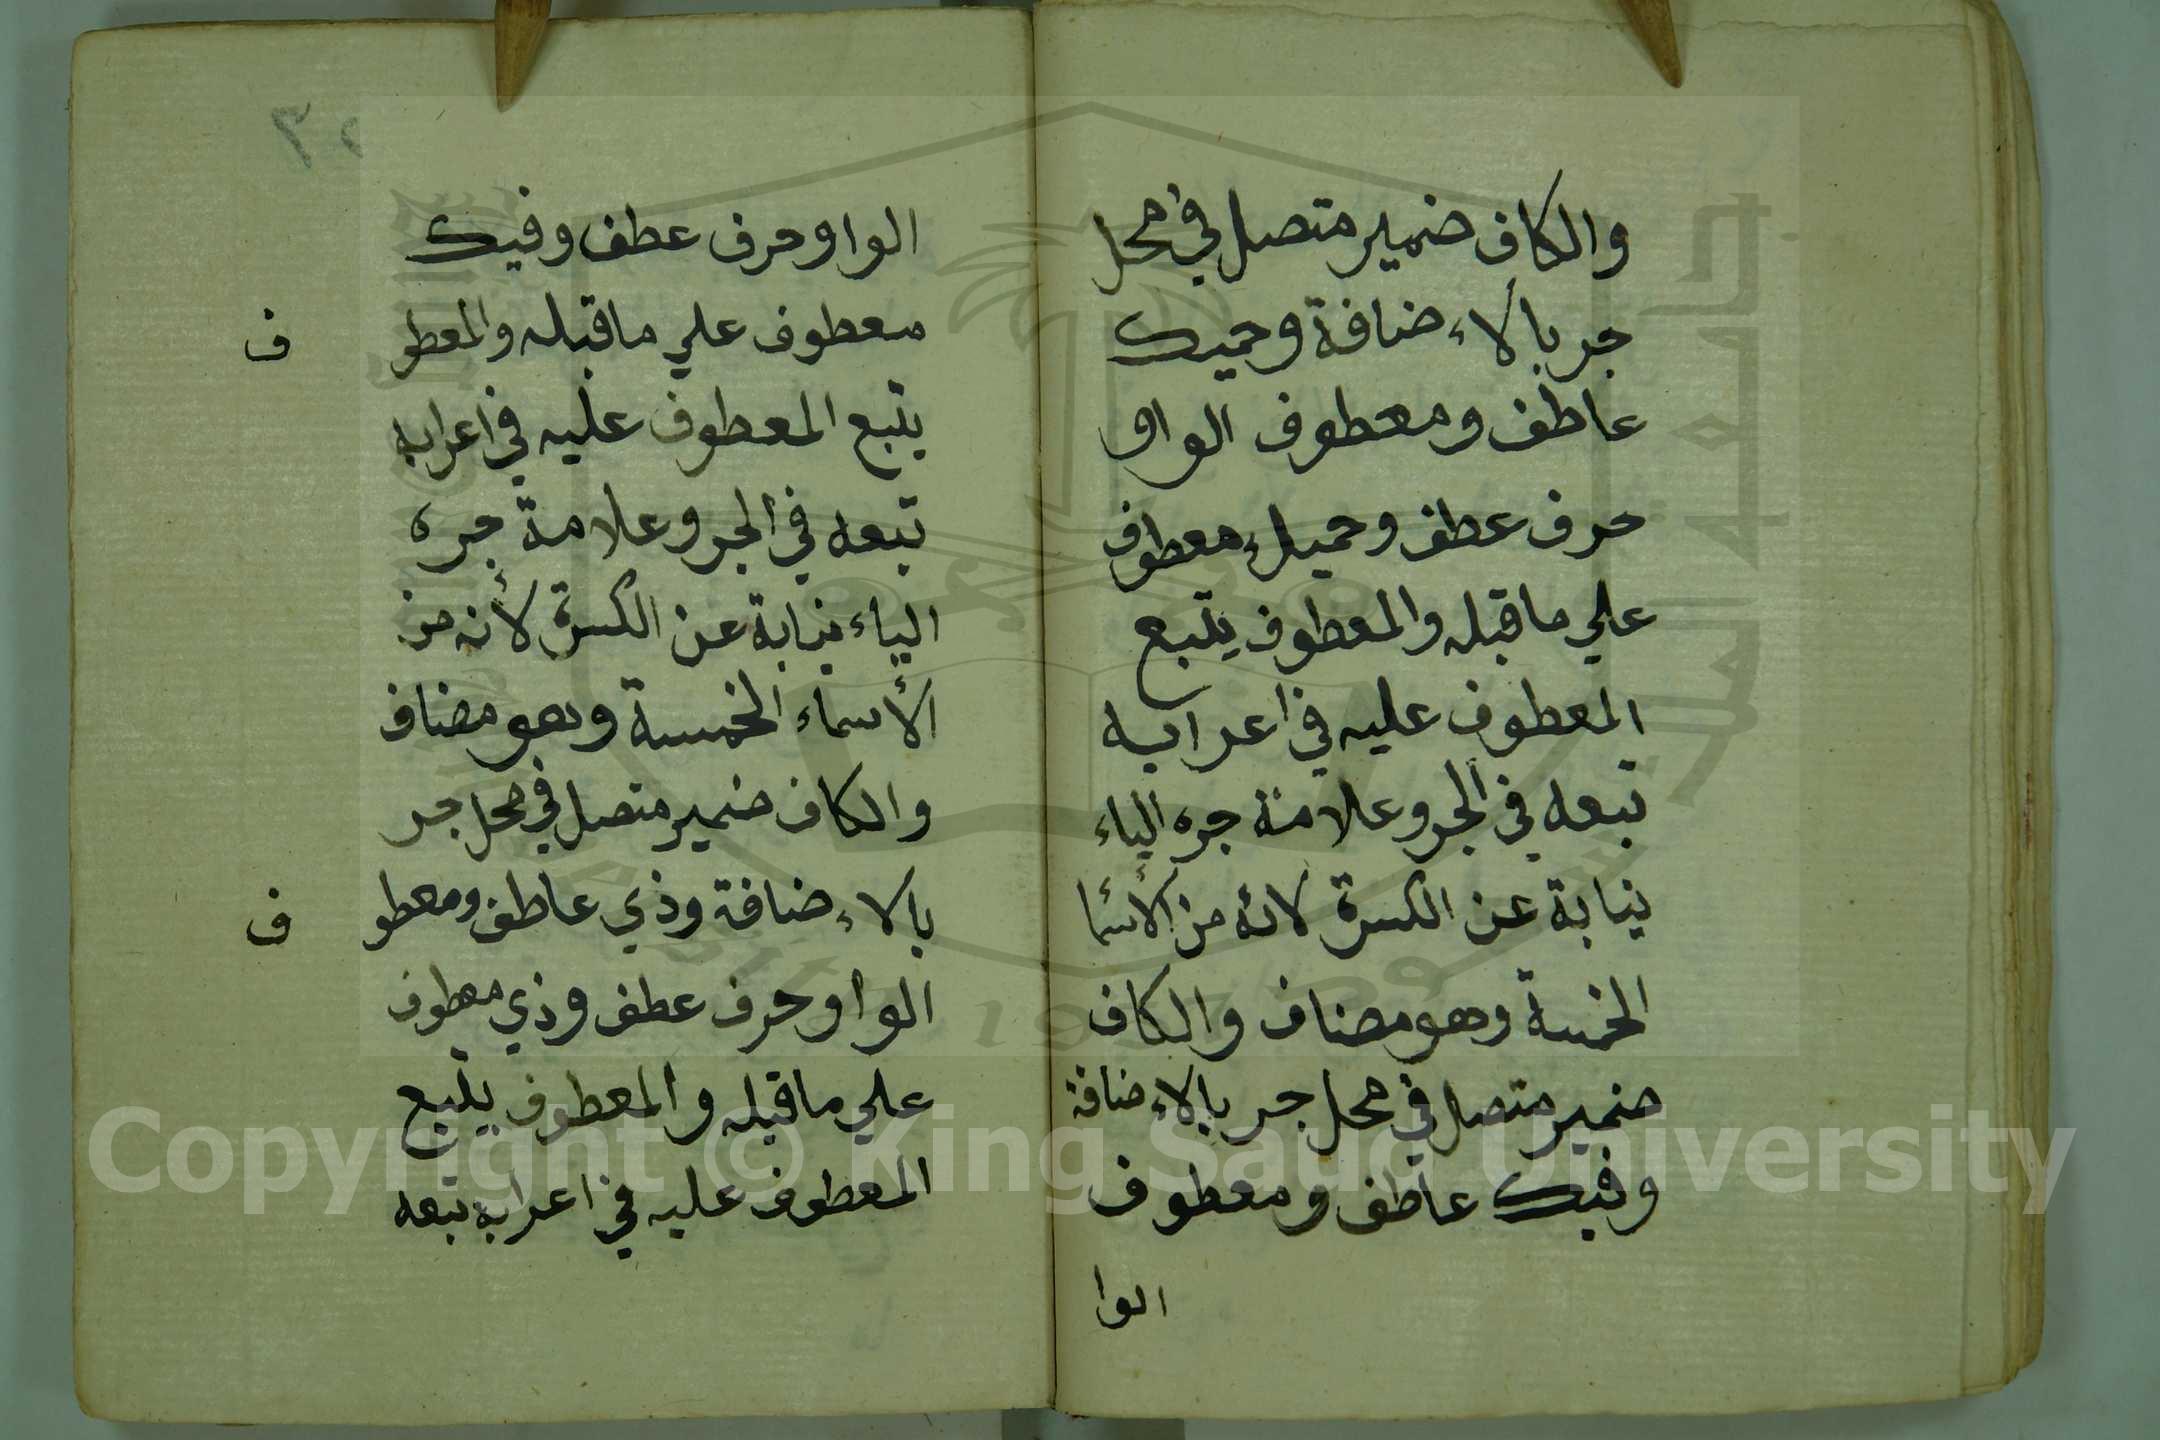 والكاف ضمير متصل في محل
جر بالاءضافة وحميك
عاطف ومعطوف الواو
حرف عطف وحميك معطوف
علي ماقبله والمعطوف يتبع
المعطوف عليه في اعرابه
تبعه في الجر وعلامة جره الياء
نيابة عن الكسرة لانه من الأسما
الخمسة وهو مضاف والكاف
ضمير متصل في محل جر بالاءضافة
وفيك عاطف ومعطوف
الوا
الواو حرف عطف وفيك
معطوف علي ماقبله والمعطو
ف
يتبع المعطوف عليه في اعرابه
تبعه في الجر وعلامة جره
الياء نيابة عن الكسرة لأنه من
الأسماء الخمسة وهو مضاف
والكاف ضمير متصل في محل جر
بالاءضافة وذي عاطف ومعطو
ف
الواو حرف عطف وذي معطوف
علي ماقبله والمعطوف يتبع
المعطوف عليه في اعرابه تبعه
Copyright © King Saud University